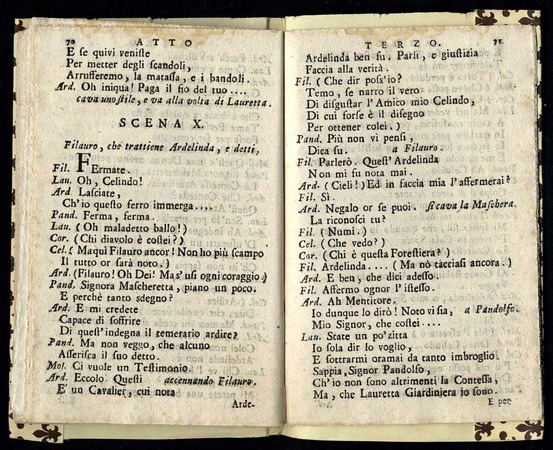 70 ATTO
E se quivi veniste
Per metter degli scandoli,
Arrufferemo, la matassa, e i bandoli.
Ard. Oh iniqua! Paga il fio del tuo ....
cava uno stile, e va alla volta di Lauretta.
SCENA X.
Filauro, che trattiene Ardelinda, e detti.
Fil. FErmate.
Lau. Oh, Celindo!
Ard. Lasciate,
Ch'io questo ferro immerga ....
Pand. Ferma, ferma.
Lau. (Oh maladetto ballo!)
Cor. (Chi diavolo è costei?)
Cel. (Maqui Filauro ancor! Non ho più scampo
Il tutto or sarà noto.)
Ard. (Filauro! Oh Dei! Mas'usi ogni coraggio.)
Pand. Signora Mascheretta, piano un poco.
E perchè tanto sdegno?
Ard. E mi credete
Capace di soffrire
Di quest'indegna il temerario ardire?
Pand. Ma non veggo, che alcuno
Asserisca il suo detto.
Mos. Ci vuole un Testimonio.
Ard. Eccolo. Questi accennando Filauro.
E' un Cavalier, cui nota
Arde-
TERZO. 71
Ardelinda ben fu. Parli, e giustizia
Faccia alla verità.
Fil. (Che dir poss'io?
Temo, se narro il vero
Di disgustar l'Amico mio Celindo,
Di cui forse è il disegno
Per ottener colei.)
Pand. Più non vi pensi,
Dica su. a Filauro.
Fil. Parlerò. Quest'Ardelinda
Non mi fu nota mai.
Ard. (Cieli!) Ed in faccia mia l'affermerai?
Fil. Sì.
Ard. Negalo or se puoi. si cava la Maschera.
La riconosci tu?
Fil. (Numi.)
Cel. (Che vedo?)
Cor. (Chi è questa Forestiera?)
Fil. Ardelinda .... (Ma nò tacciasi ancora.)
Ard. E ben, che dici adesso.
Fil. Affermo ognor l'istesso.
Ard. Ah Mentitore.
Io dunque lo dirò! Noto vi sia, a Pandolfo.
Mio Signor, che costei ....
Lau. State un po' zitta
Io sola dir lo voglio,
E sottrarmi oramai da tanto imbroglio.
Sappia, Signor Pandolfo,
Ch'io non sono altrimenti la Contessa,
Ma, che Lauretta Giardiniera io sono.
E per